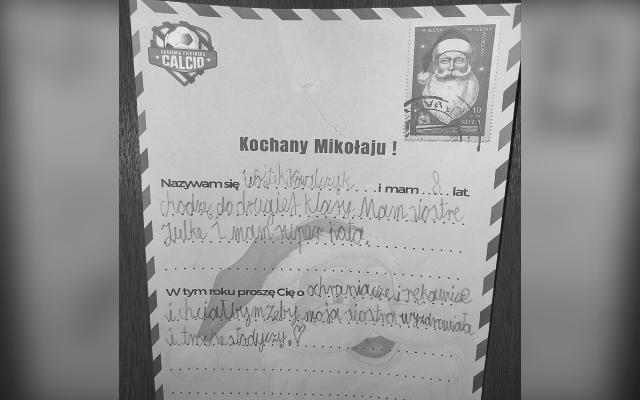 AKADEMIA PIŁKARSKA
CALCIO
Kochany Mikołaju !
Nazywam się Wojtek Kowalczyk i mam 8 lat.
chodzę do drugiej klasy Mam siostrę
Julkę i mam super tatą.
W tym roku proszę Cię o ochraniacze i rękawice
i chciałbym żeby moja siostra wyzdrowiała
i trochę słodyczy. ♡